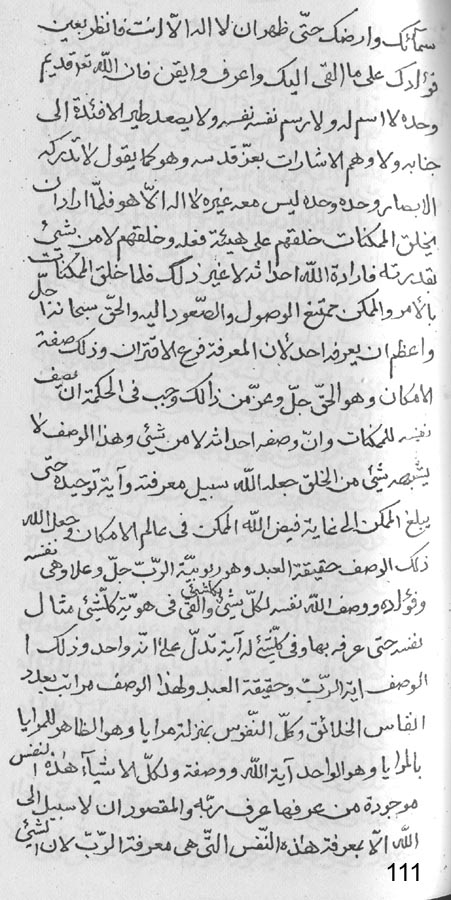 سمآئك وارضك حتّى ظهر ان لا اله الّا انت فانظر بعين
فؤادك على ما القى اليك واعرف وايقن فان اللّه تعر قديم
وحده لا اسم له ولا رسم نفسه نفسه ولا يصعد طير الافئدة الى
جنابه ولا وهم الاشارات بعزّ قدسه وهو كما يقول لا تدركه
الابصار وحده وحده ليس معه غيره لا اله الّا هو فلمّا اراد ان
يخلق الممكنات خلقهم على هيئة فعله وخلقهم لا من شيئ
بقدرته فارادة اللّه احداثه لا غير ذلك فلما خلق الممكنات
بالأمر والممكن ممتنع الوصول والصّعود اليه والحقّ سبحانه اجلّ
واعظم ان يعرفه احد لان المعرفة فرع الاقتران وذلك صفة
الامكان وهو الحقّ جلّ وعزّ من ذالك وجب فى الحكمة ان يصف
نفسه للممكنات وانّ وصفه احداثه لا من شيئ وهذا الوصف لا
يشبهه شيئ من الخلق جعله اللّه سبيل معرفته وآية توحيده حتّى
يبلغ الممكن الى غاية فيض اللّه الممكن فى عالم الامكان وجعل اللّه
ذلك الوصف حقيقة العبد وهو ربوبيّة الرّبّ جلّ وعلا وهى نفسه
وفؤاده ووصف اللّه نفسه لكلّ شيئ بكلشيئ والقى فى هويّة كلّشيئ مثال
نفسه حتى عرفه بها وفى كلّشيئ له آية تدلّ على انّه واحد وذلك ا
الوصف اية الرّبّ وحقيقة العبد ولهذا الوصف مراتب بعدد
انفاس الخلائق وكلّ النّفوس بمنزلة مرايا وهو الظاهر للمرايا
بالمرايا وهو الواحد آية اللّه ووصفه ولكلّ الاشيآء هذه النفس
موجودة من عرفها عرف ربّه والمقصور ان لا سبيل الى
اللّه الّا بمعرفة هذه النّفس الّتى هى معرفة الرّبّ لان الشيئ
111